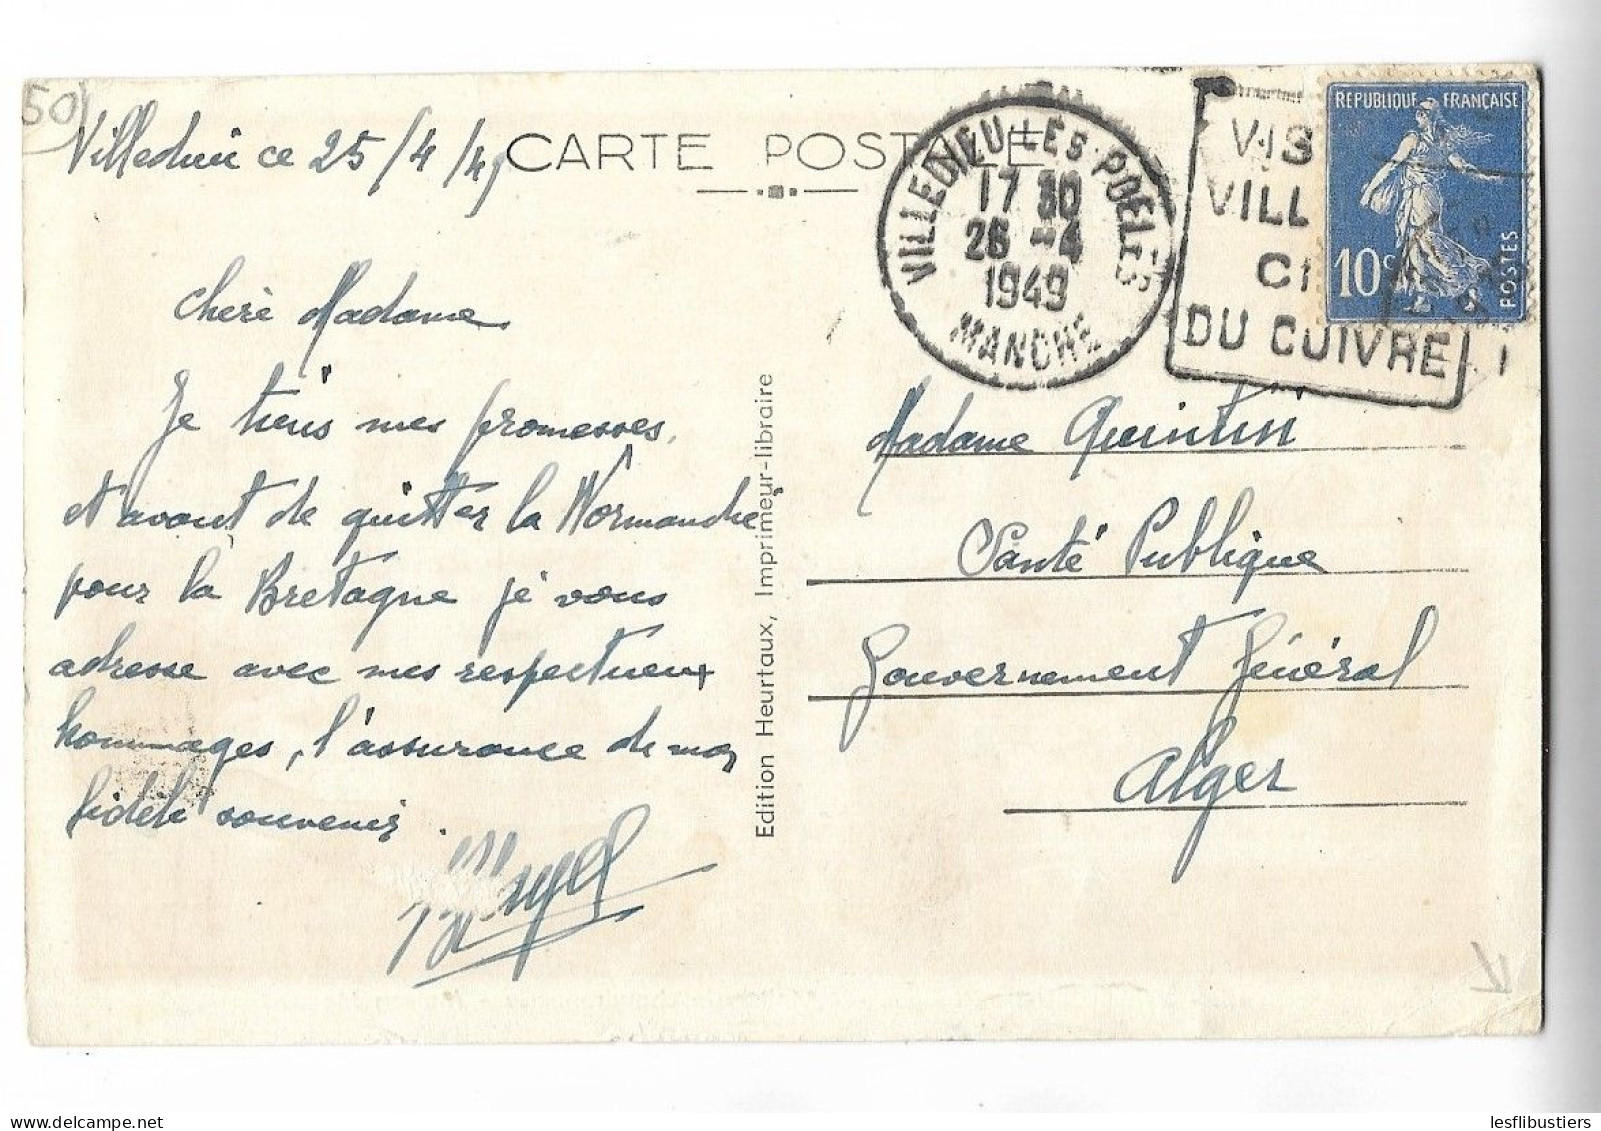 50
Villedieu ce 25/4/49
CARTE POSTALE
Chère Madame
Je tiens mes promesses,
et avant de quitter la Normandie
pour la Bretagne je vous
adresse avec mes respectueux
hommages, l'assurance de mon
fidèle souvenir.
Edition Heurtaux, Imprimeur-libraire
VILLEDIEU-LES-POÊLES
17 30
26 -4
1949
MANCHE
VIS
VILL
CI
DU CUIVRE
REPUBLIQUE FRANÇAISE
10c
POSTES
Madame Quintin
Santé Publique
Gouvernement Général
Alger
lesflibustiers